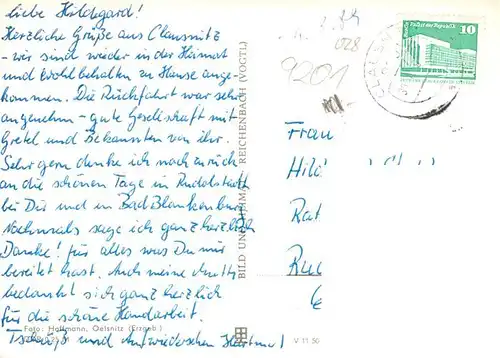 liebe Hildegard!
Herzliche Grüße aus Clausnitz
- wir sind wieder in der Heimat
und Wohlbehalten zu Hause ange-
kommen. Die Rückfahrt war sehr
angenehm - gute Gesellschaft mit
Gretel und Bekannten von ihr.
Sehr gern denke ich noch zurück
an die schönen Tage in Rudolstadt
bei Dir und in Bad Blankenburg
Nochmals sage ich ganz herzlich
Danke! für alles was Du mir
bereitet hast. Auch meine Mutti
bedankt sich ganz herzlich
für die schöne Handarbeit.
Tschüß und Aufwiedersehen Hartmut
Foto: Hoffmann, Oelsnitz (Erzgeb.)
BILD UND HEIMAT REICHENBACH (VOGTL)
V 11 50
10
028
9201
Frau
Hil
Rat
Ru